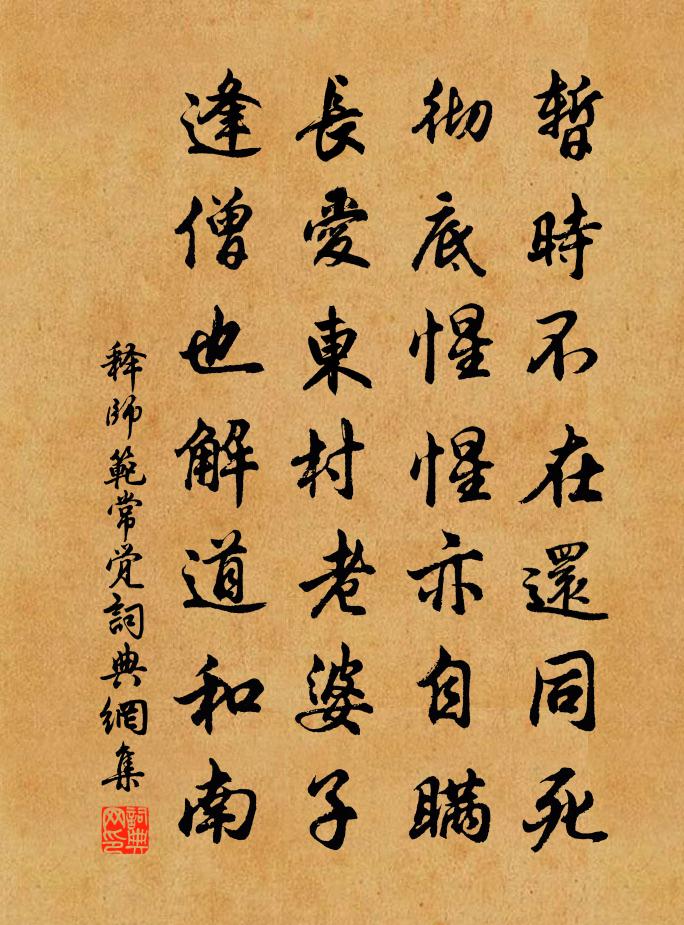 暫時不在還同死
彻底惺惺亦自瞞
長愛東村老婆子
逢僧也解道和南
释師範常觉詞典網集
詞典网印